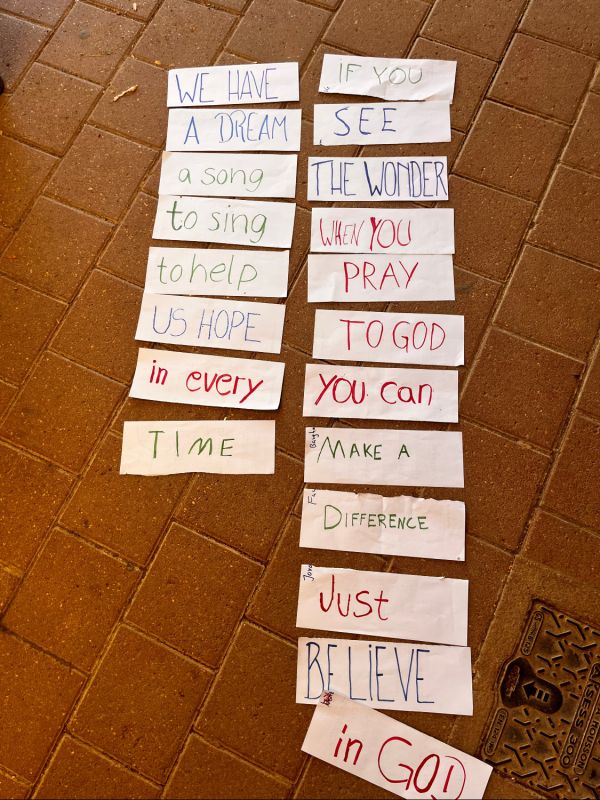 WE HAVE
A DREAM
a song
to sing
to help
US HOPE
in every
TIME
IF YOU
SEE
THE WONDER
WHEN YOU
PRAY
TO GOD
YOU can
MAKE A
DIFFERENCE
Just
BELIEVE
in GOD